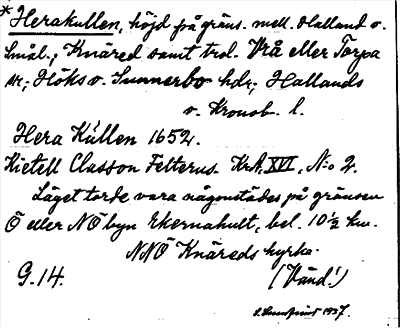 * Herakullen, höjd på gräns. mell. Halland o.
Smål.; Knäred samt trol. Vrå eller Torpa
sn; Höks o. Sunnerbo hdr; Hallands
o. Kronob. l.
Hera Kullen 1652.
Kietell Classon Felterus. KrA, XVI, N:o 2.
Läget torde vara någonstädes på gränsen
Ö eller NÖ byn Ekernahult, bel. 10½ km.
NNÖ Knäreds kyrka.
G.14. (Vänd!)
1937.